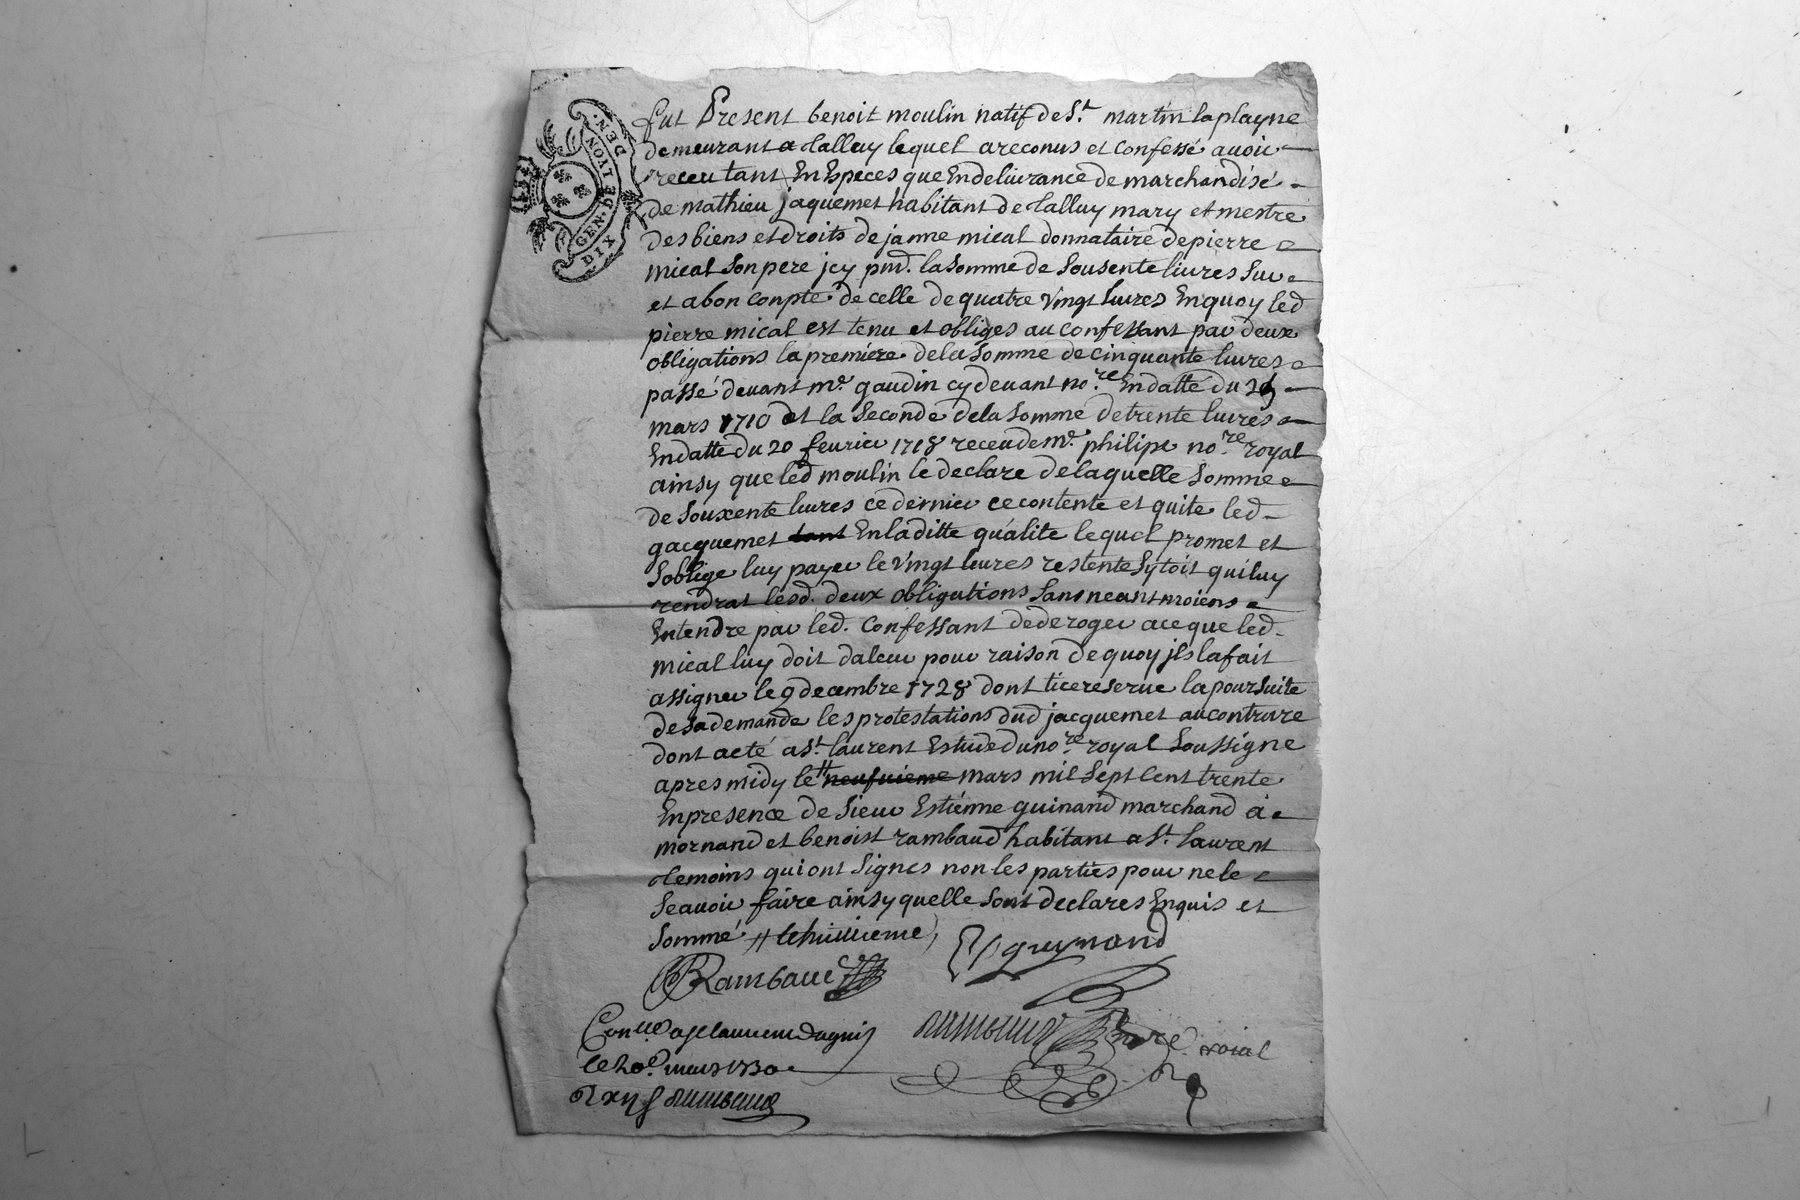 GEN. DE LYON.
DIX DEN.
fut Present benoit moulin natif de St. martin laplagne
demeurant a talluy lequel a reconus et Confessé avoir
receu tant En Especes que En delivrance de marchandise
de mathieu jaquemet habitant de talluy mary et mestre
des biens et droits de janne mical donnataire de pierre
mical Son pere jcy pnt. la Somme de Sousente livres Sur
et a bon conpte de celle de quatre vingt livres En quoy led
pierre mical est tenu et obliges au confessant par deux
obligations la premiere de la Somme de cinquante livres
passé devant me. gaudin cy devant no.re En datte du
mars 1710 et la Seconde de la Somme de trente livres
En datte du 20 fevrier 1718 receu de me. philipe no.re royal
ainsy que led moulin le declare de laquelle Somme
de Souxente livres ce dernier ce contente et quite led
gacquemet tant En la ditte qualite lequel promet et
Soblige luy payer le vingt livres restente Sytoit quil luy
rendrat lesd. deux obligations Sans neantmoiens
Entendre par led. Confessant de deroger a ce que led
mical luy doit daleur pour raison de quoy jls la fait
assigner le 9 decembre 1728 dont il ce reserve la poursuite
de Sa demande les protestations dud jacquemet au contraire
dont acté a St. laurent Estude du no.re royal Soussigne
apres midy le # neufvieme mars mil Sept Cent trente
En presence de Sieur Estienne guinand marchand a
mornand et benoist rambaud habitant a St. laurent
temoins qui ont Signes non les parties pour ne le
Scavoir faire ainsy quelle Sont declares Enquis et
Sommé # le huitieme
guynand
Rambaud
Con.lle a St laurent dagnis
rambaud no.re roial
le 20e. mars 1730
rambaud